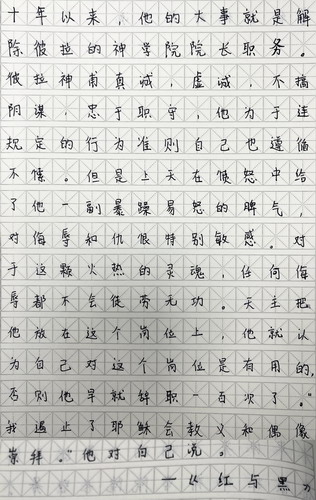 十年以来，他的大事就是解
除彼拉的神学院院长职务。
彼拉神甫真诚，虔诚，不搞
阴谋，忠于职守，他为于连
规定的行为准则自己也遵循
不懈。但是上天在愤怒中给
了他一副暴躁易怒的脾气，
对侮辱和仇恨特别敏感。对
于这颗火热的灵魂，任何侮
辱都不会徒劳无功。天主把
他放在这个岗位上，他就认
为自己对这个岗位是有用的，
否则他早就辞职一百次了。“
我遏止了耶稣会教义和偶像
崇拜。”他对自己说。
——《红与黑》